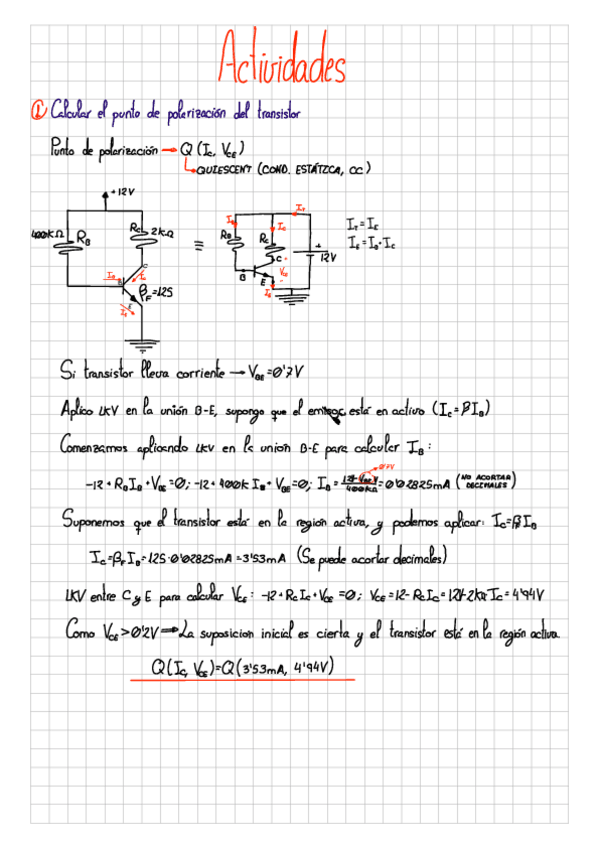 Actividades
① Calcular el punto de polarización del transistor
Punto de polarización → Q (I_C, V_CE)
QUIESCENT (COND. ESTÁTICA, CC)
+12V
400kΩ R_B
R_C 2kΩ
I_B B
C I_C
β_F=125
E I_E
≡
I_T
I_B
R_B
I_C
R_C
C
+
V_CE
-
B
E
I_E
+
12V
I_T=I_E
I_E=I_B+I_C
Si transistor lleva corriente → V_BE=0'7V
Aplico LKV en la unión B-E, supongo que el está en activo (I_C=βI_B)
Comenzamos aplicando LKV en la unión B-E para calcular I_B:
-12+R_B I_B+V_BE=0; -12+400k I_B+V_BE=0; I_B = 12V-V_BE/400kΩ = 0'02825mA (NO ACORTAR DECIMALES)
0'7V
Suponemos que el transistor está en la región activa, y podemos aplicar: I_C=βI_B
I_C=β_F I_B=125·0'02825mA=3'53mA (Se puede acortar decimales)
LKV entre C y E para calcular V_CE: -12+R_C I_C+V_CE=0; V_CE=12-R_C I_C=12V-2kΩ I_C=4'94V
Como V_CE>0'2V → La suposicion inicial es cierta y el transistor está en la región activa.
Q(I_C, V_CE)=Q(3'53mA, 4'94V)